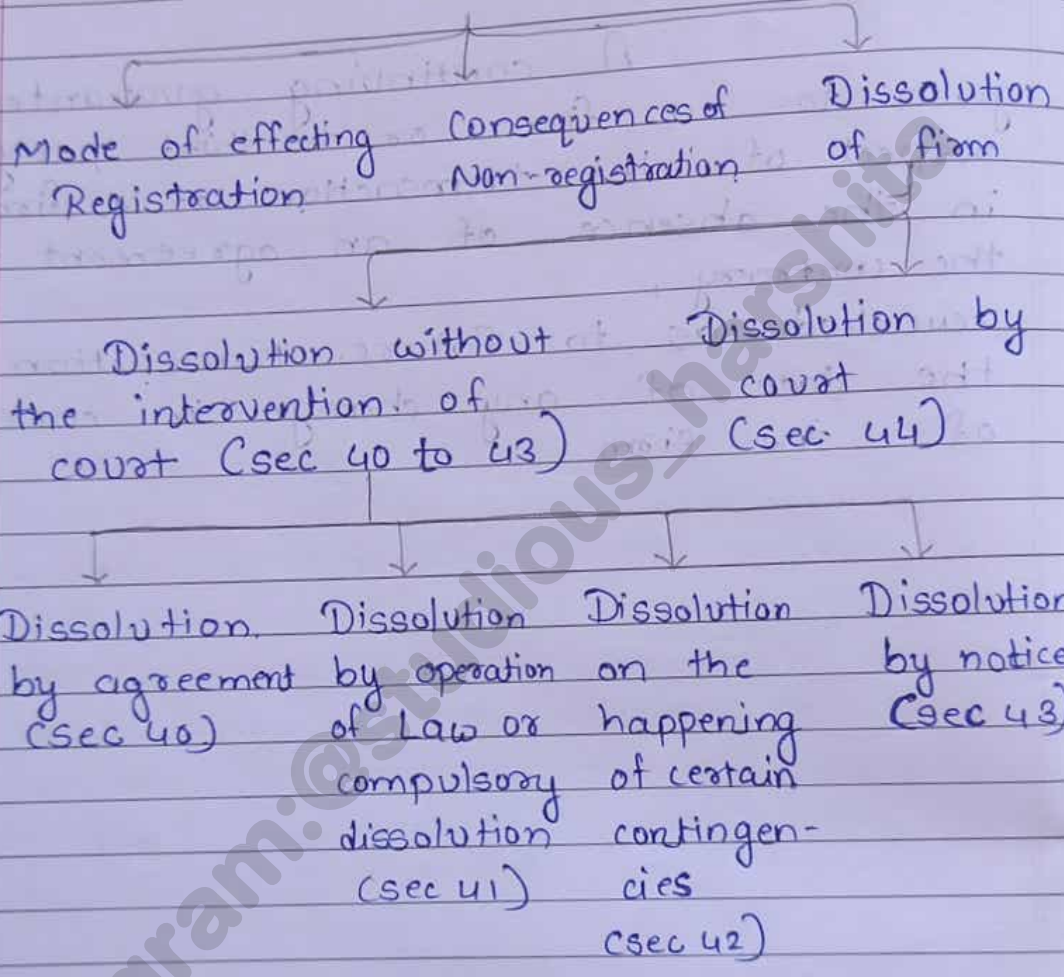 Mode of effecting
Registration
Consequences of
Non-registration
Dissolution
of firm
Dissolution without
the intervention of
court (sec 40 to 43)
Dissolution by
court
(sec. 44)
Dissolution
by agreement
(sec 40)
Dissolution
by operation
of Law or
compulsory
dissolution
(sec 41)
Dissolution
on the
happening
of certain
contingen-
cies
(sec 42)
Dissolution
by notice
(sec 43)
gram:@studious_harshita